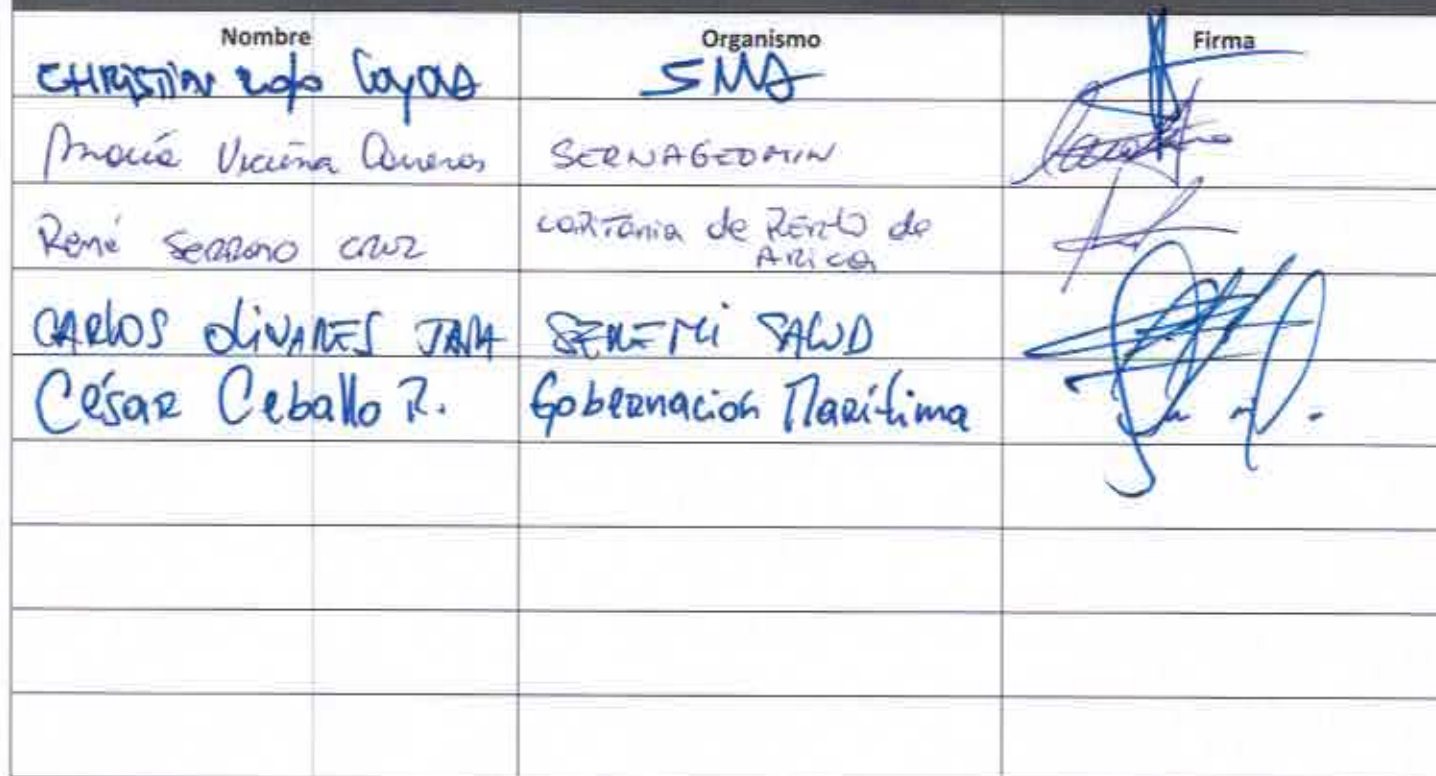 Nombre Organismo Firma
CHRISTIAN Rojo Loyola SMA
María Vicuña SERNAGEOMIN
René SERRANO CRUZ CAPITANIA de PUERTO de
ARICA
CARLOS OLIVARES JARA SEREMI SALUD
César Ceballo R. Gobernacion Marítima